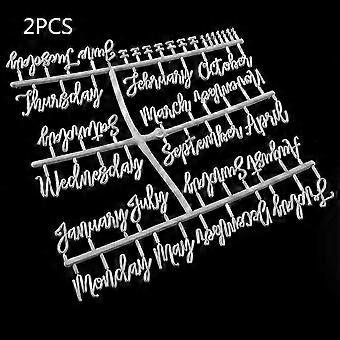 2PCS
Tuesday June
Thursday
February October
March November
Saturday
September April
Wednesday
August Sunday
January July
Monday May December Friday